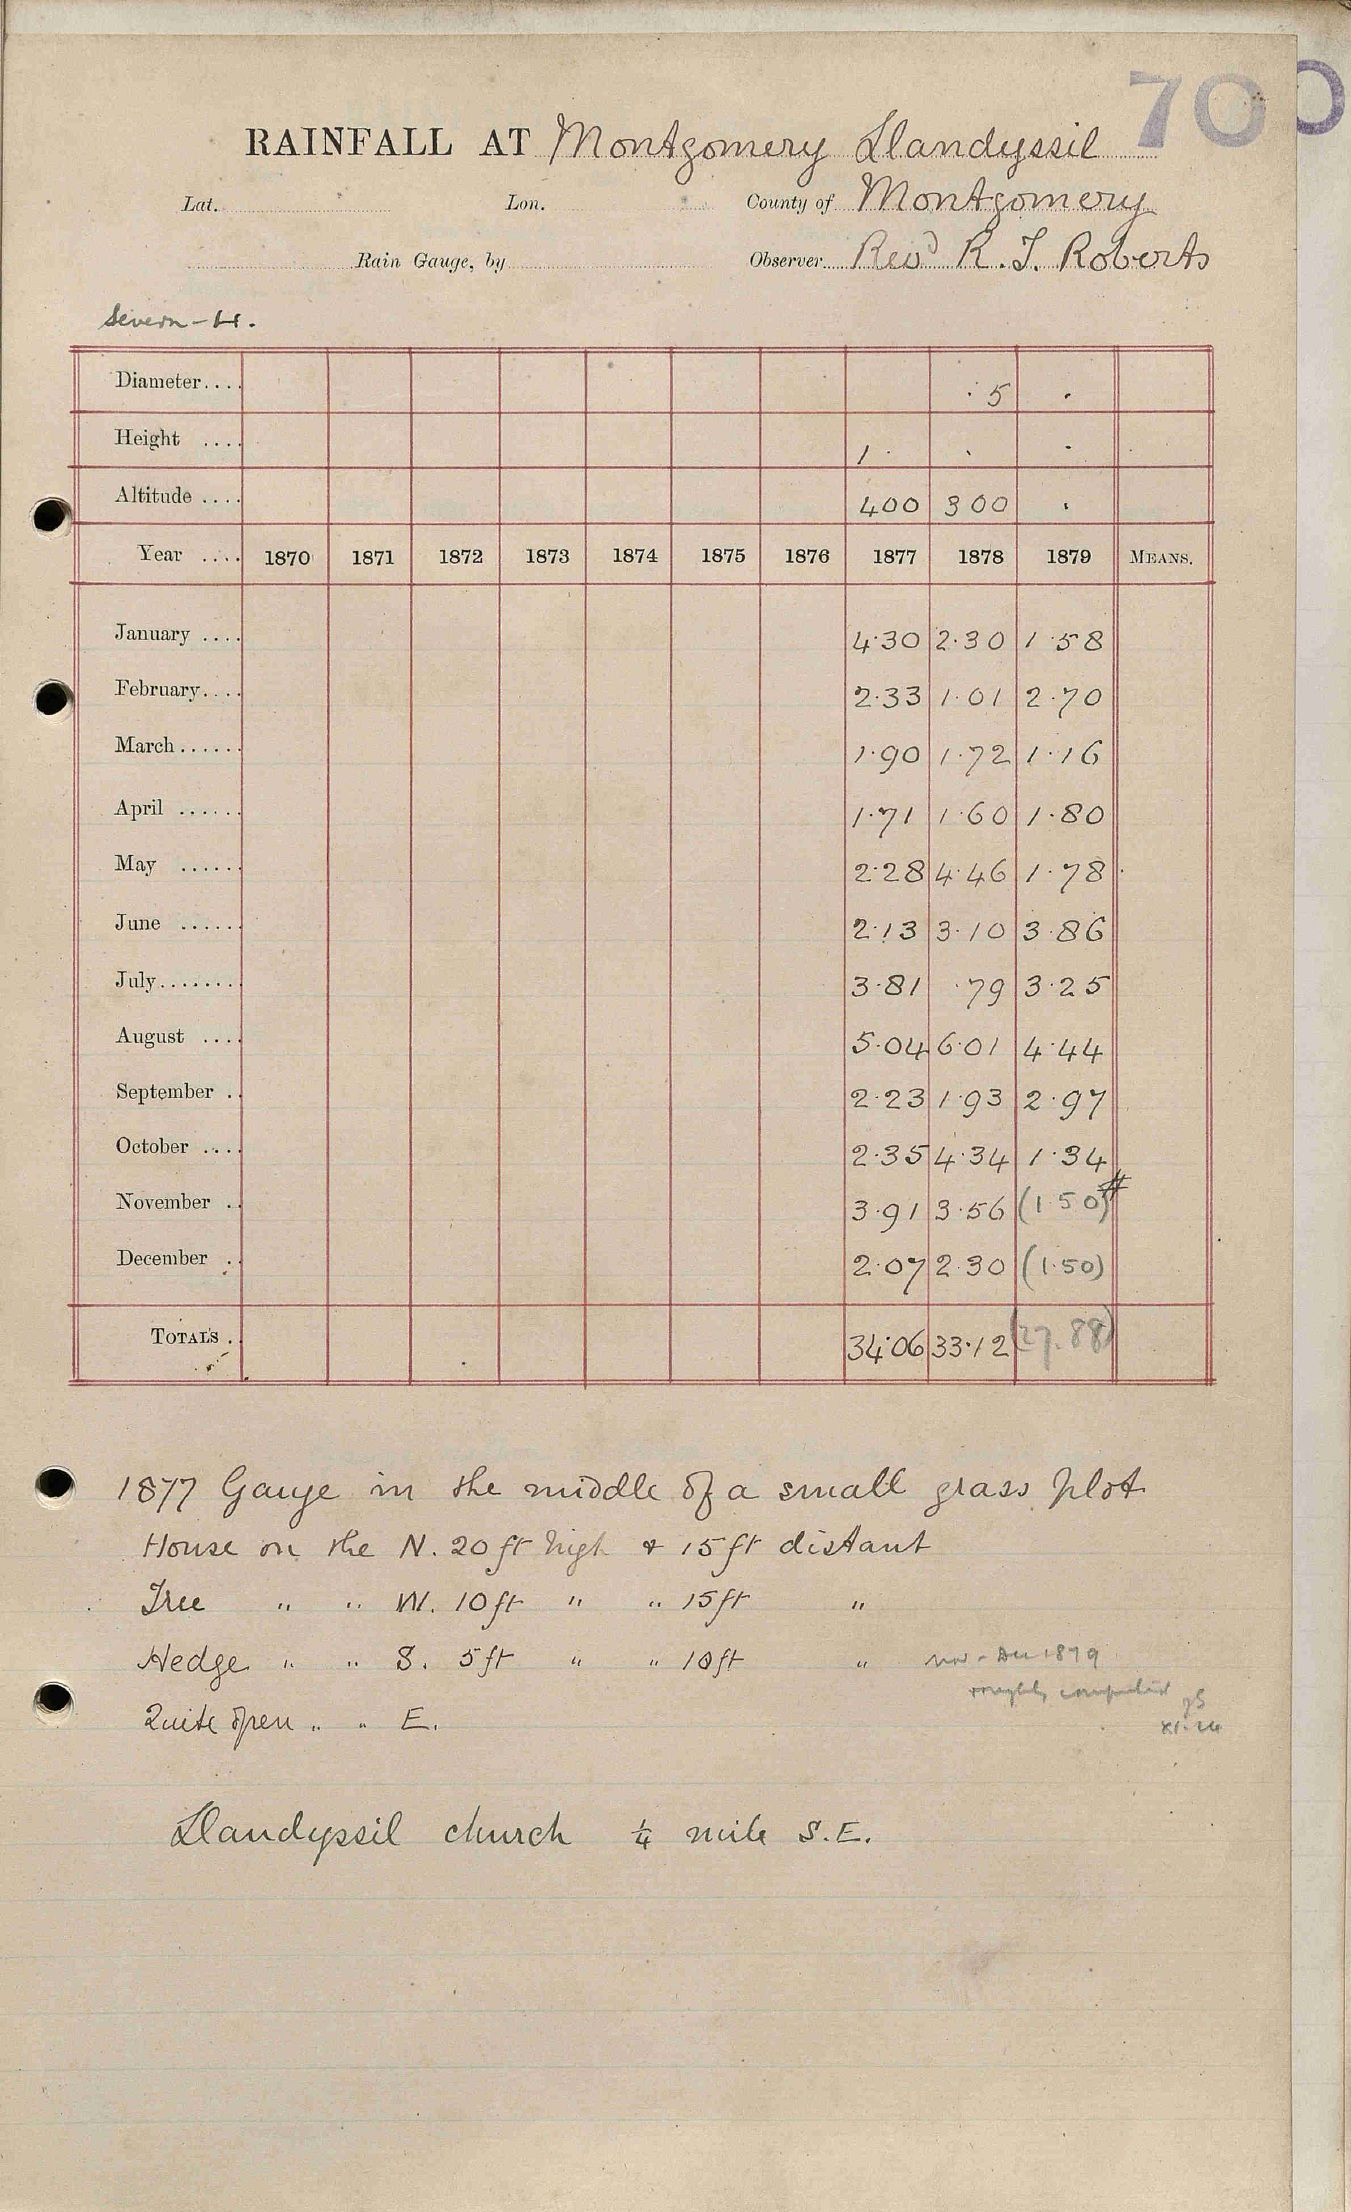 70
RAINFALL AT Montgomery Llandyssil
Lat. Lon. County of Montgomery
Rain Gauge, by Observer Revd R. J. Roberts
Severn - H.
Diameter.... · 5 ·
Height .... 1 · · ·
Altitude .... 400 300 ·
Year .... 1870 1871 1872 1873 1874 1875 1876 1877 1878 1879 MEANS.
January .... 4·30 2·30 1·58
February.... 2·33 1·01 2·70
March...... 1·90 1·72 1·16
April ...... 1·71 1·60 1·80
May ...... 2·28 4·46 1·78
June ...... 2·13 3·10 3·86
July........ 3·81 ·79 3·25
August .... 5·04 6·01 4·44
September .. 2·23 1·93 2·97
October .... 2·35 4·34 1·34
November .. 3·91 3·56 (1·50)#
December .. 2·07 2·30 (1·50)
TOTALS .. 34·06 33·12 (27.88)
1877 Gauge in the middle of a small grass plot
House on the N. 20 ft high & 15 ft distant
Tree " " W. 10 ft " " 15 ft "
Hedge " " S. 5 ft " " 10 ft "
Nov - Dec 1879
roughly computed
Quite open " " E.
XI.24
Llandyssil church ¼ mile S.E.